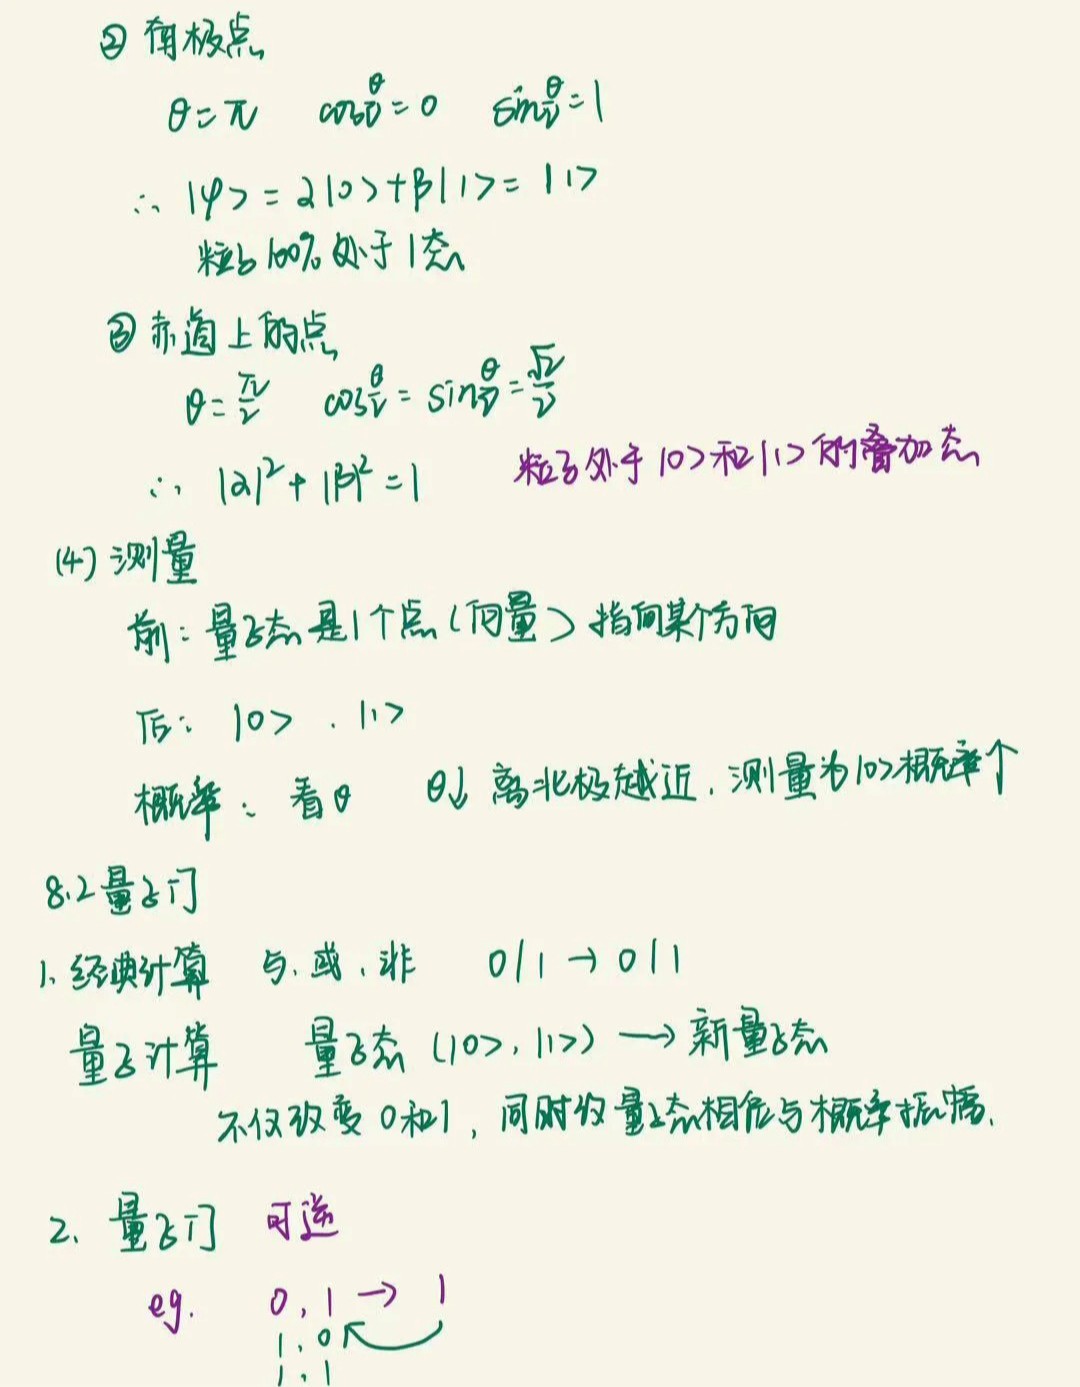 ② 南极点
θ=π cosθ/2=0 sinθ/2=1
∴ |φ>=α|0>+β|1>=|1>
粒子100%处于1态
③ 赤道上的点
θ=π/2 cosθ/2=sinθ/2=√2/2
∴ |α|²+|β|²=1 粒子处于|0>和|1>的叠加态
(4) 测量
前：量子态是1个点（向量）指向某个方向
后：|0>.|1>
概率：看θ θ↓离北极越近，测量为|0>概率↑
8.2量子门
1、经典计算 与、或、非 0/1→0/1
量子计算 量子态(|0>,|1>)→新量子态
不仅改变0和1，同时改量子态相位与概率振幅.
2、量子门 可逆
eg. 0,1→1
1,0
1,1